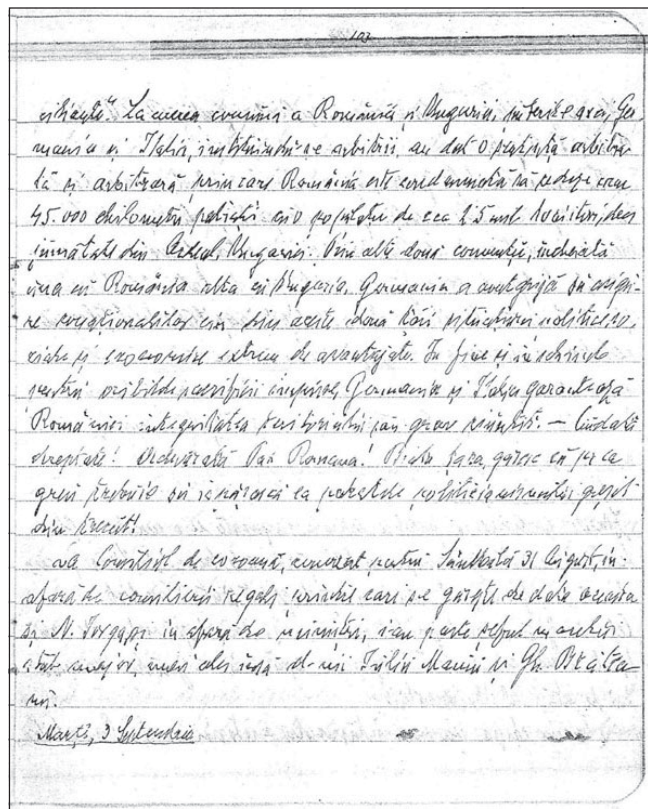 103
La cererea comună a României și Ungariei, puterile axei, Ger
mania și Italia, instituindu-se arbitrii, au dat o sentință arbitra
lă și arbitrară, prin care România este condamnată să cedeze cca
45.000 chilometri patrați cu o populație de cca 2.5 mil locuitori, deci
jumătate din Ardeal, Ungariei. Prin alte două convenții, încheiată
una cu România alta cu Ungaria, Germania a avut grijă să asigu-
re conaționalilor ei din aceste două țări situațiuni politice, so
ciale și economice extrem de avantajate. În fine și în schimb
pentru sacrificii impuse, Germania și Italia garantează
României integritatea teritoriului — Ciudată
dreptate! Adevărată Pax Romana! Biata țara, cu
greu trebuie să ispășească ea păcatele politicianismului
din trecut!
La Consiliul de coroană, convocat pentru Sâmbătă 31 August, în
afară de consilierii regali, printre cari se găsește de data aceasta
și N. Iorga, și în afară de miniștri, iau parte
stat major, mai ales însă d-nii Iuliu Maniu și Gh. Brătia
nu.
Marți, 3 Septembrie